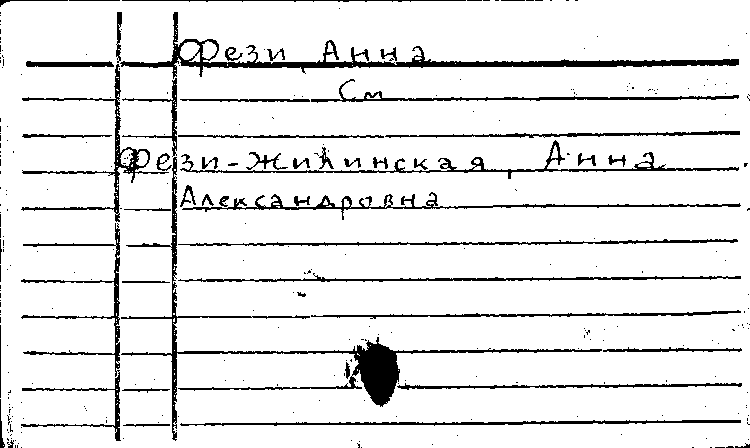 Фези, Анна
См
Фези-Жилинская, Анна
Александровна